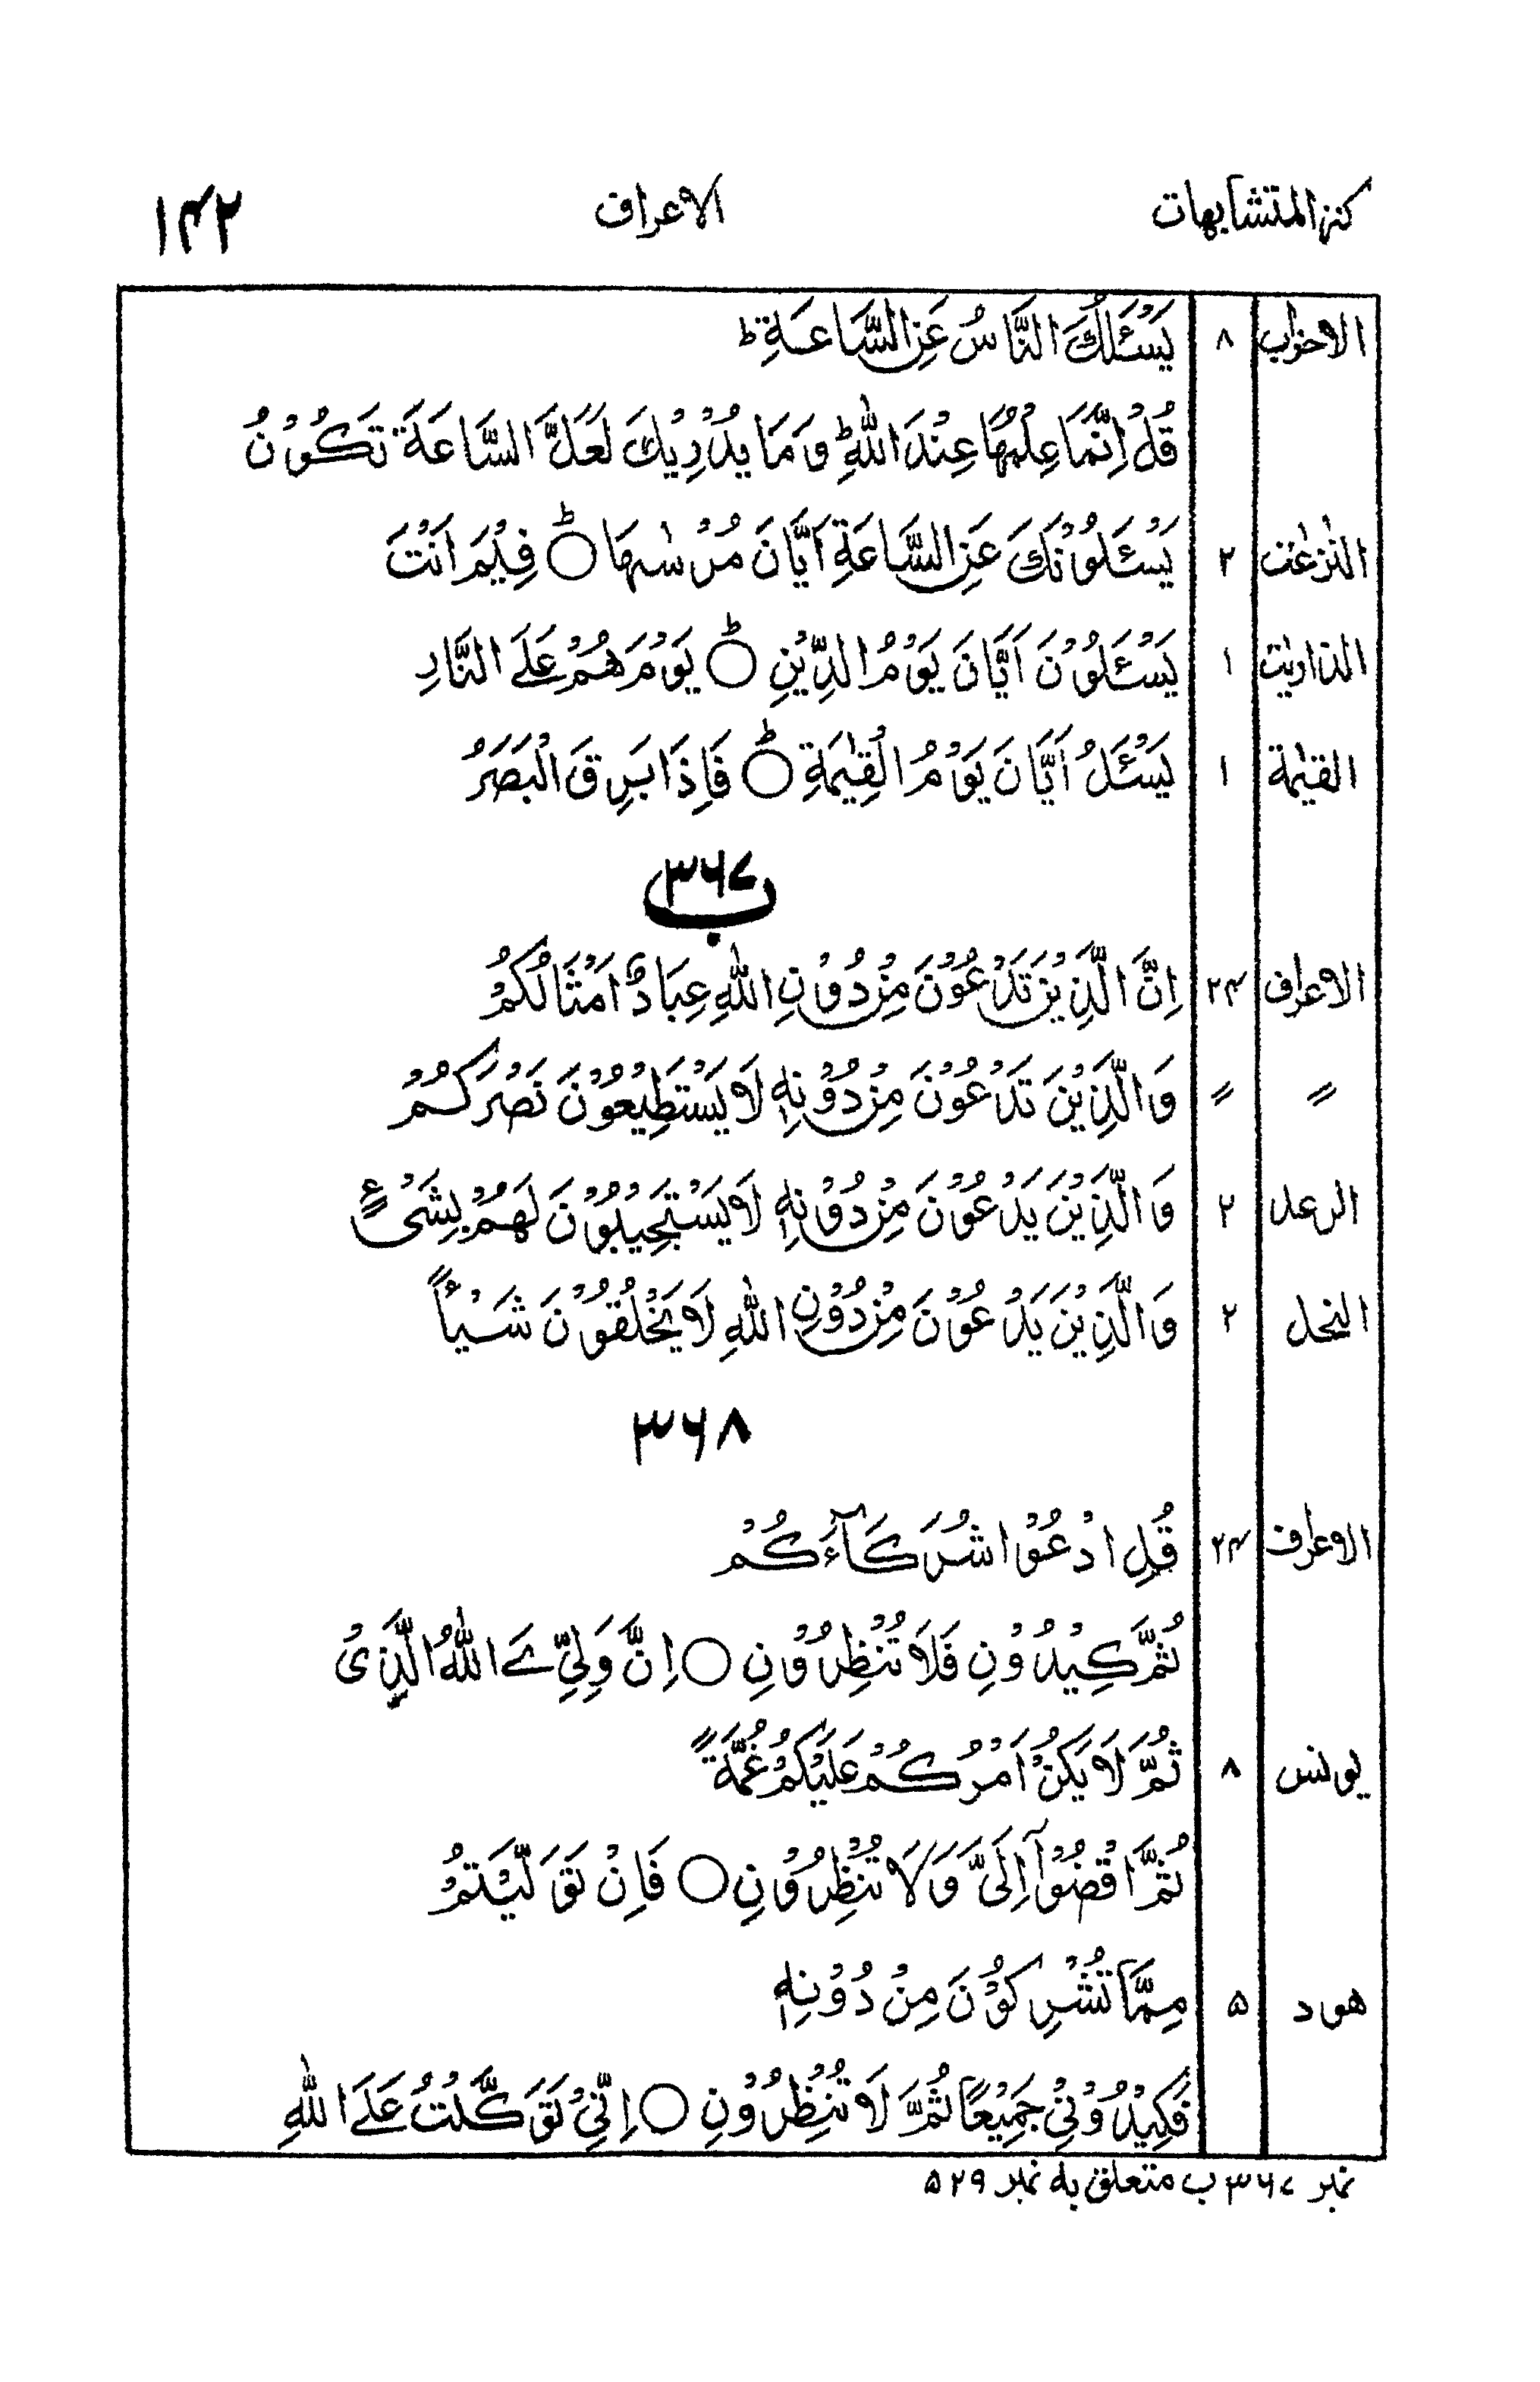 كنز المتشابهات الاعراف ۱۴۲
الاحزاب ۸ يَسْـَٔلُكَ النَّاسُ عَنِ السَّاعَةِ ؕ
قُلْ اِنَّمَا عِلْمُهَا عِنْدَ اللّٰهِ ؕ وَمَا يُدْرِيْكَ لَعَلَّ السَّاعَةَ تَكُوْنُ
النّٰزعٰت ۲ يَسْـَٔلُوْنَكَ عَنِ السَّاعَةِ اَيَّانَ مُرْسٰىهَا ○ؕ فِيْمَ اَنْتَ
الذاريٰت ۱ يَسْـَٔلُوْنَ اَيَّانَ يَوْمُ الدِّيْنِ ○ؕ يَوْمَ هُمْ عَلَى النَّارِ
القيٰمة ۱ يَسْـَٔلُ اَيَّانَ يَوْمُ الْقِيٰمَةِ ○ؕ فَاِذَا بَرِقَ الْبَصَرُ
۳۶۷ ب
الاعراف ۲۴ اِنَّ الَّذِيْنَ تَدْعُوْنَ مِنْ دُوْنِ اللّٰهِ عِبَادٌ اَمْثَالُكُمْ
〃 〃 وَالَّذِيْنَ تَدْعُوْنَ مِنْ دُوْنِهٖ لَا يَسْتَطِيْعُوْنَ نَصْرَكُمْ
الرعد ۲ وَالَّذِيْنَ يَدْعُوْنَ مِنْ دُوْنِهٖ لَا يَسْتَجِيْبُوْنَ لَهُمْ بِشَىْءٍ
النحل ۲ وَالَّذِيْنَ يَدْعُوْنَ مِنْ دُوْنِ اللّٰهِ لَا يَخْلُقُوْنَ شَيْـًٔا
۳۶۸
الاعراف ۲۴ قُلِ ادْعُوْا شُرَكَآءَكُمْ
ثُمَّ كِيْدُوْنِ فَلَا تُنْظِرُوْنِ ○ اِنَّ وَلِيِّ‍ۦَ اللّٰهُ الَّذِىْ
يونس ۸ ثُمَّ لَا يَكُنْ اَمْرُكُمْ عَلَيْكُمْ غُمَّةً
ثُمَّ اقْضُوْٓا اِلَىَّ وَلَا تُنْظِرُوْنِ ○ فَاِنْ تَوَلَّيْتُمْ
هود ۵ مِمَّا تُشْرِكُوْنَ مِنْ دُوْنِهٖ
فَكِيْدُوْنِىْ جَمِيْعًا ثُمَّ لَا تُنْظِرُوْنِ ○ اِنِّىْ تَوَكَّلْتُ عَلَى اللّٰهِ
نمبر ۳۶۷ ب متعلق به نمبر ۵۲۹